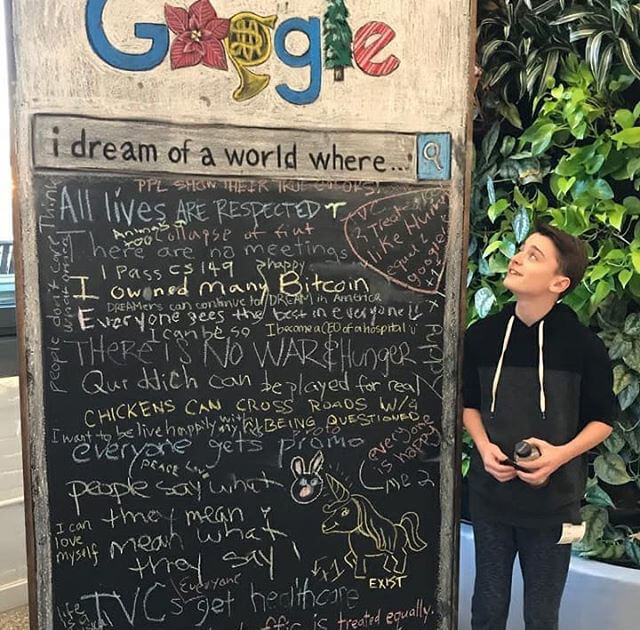 Google
i dream of a world where...
PPL SHOW THEIR TRUE COLORS!
All lives ARE RESPECTED
Animals too
Collapse of fiat
There are no meetings
I PASS CS 149
happy
I owned many Bitcoin
DREAMers can continue to DREAM in America
Everyone sees the best in everyone!!
I can be so
I become a CEO of a hospital
THERE IS NO WAR & Hunger
Quidditch can be played for real
CHICKENS CAN CROSS ROADS W/O
BEING QUESTIONED
I want to be live happily with my
everyone gets promo
everyone is happy
PEACE
Love
me 2
people say what
they mean &
mean what
they say
I can
love
myself
+1
EXIST
Everyone
TVCs get healthcare
is treated equally.
People don't care
Think